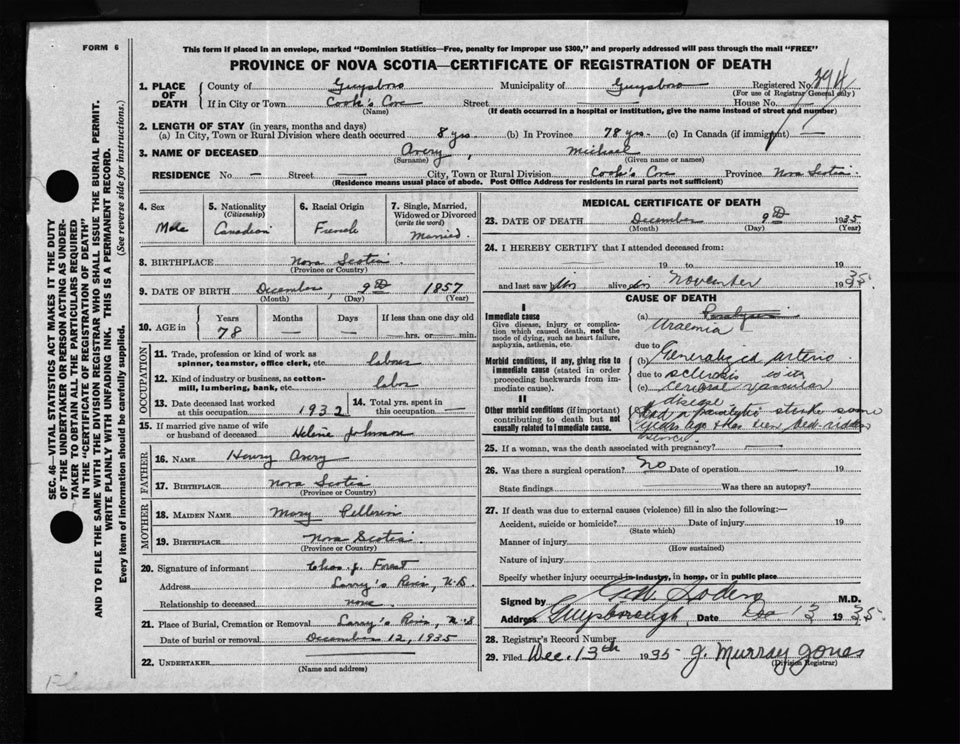 FORM 6
This form if placed in an envelope, marked "Dominion Statistics—Free, penalty for improper use $300," and properly addressed will pass through the mail "FREE"
PROVINCE OF NOVA SCOTIA—CERTIFICATE OF REGISTRATION OF DEATH
SEC. 46—VITAL STATISTICS ACT MAKES IT THE DUTY
OF THE UNDERTAKER OR PERSON ACTING AS UNDER-
TAKER TO OBTAIN ALL THE PARTICULARS REQUIRED
IN THE "CERTIFICATE OF REGISTRATION OF DEATH"
AND TO FILE THE SAME WITH THE DIVISION REGISTRAR WHO SHALL ISSUE THE BURIAL PERMIT.
WRITE PLAINLY WITH UNFADING INK. THIS IS A PERMANENT RECORD.
Every item of information should be carefully supplied. (See reverse side for instructions.)
1. PLACE OF DEATH County of Guysboro Municipality of Guysboro Registered No. 394
(For use of Registrar General only)
If in City or Town Cook's Cove Street House No.
(Name) (If death occurred in a hospital or institution, give the name instead of street and number)
2. LENGTH OF STAY (in years, months and days)
(a) In City, Town or Rural Division where death occurred 8 yrs. (b) In Province 78 yrs. (c) In Canada (if immigrant) —
3. NAME OF DECEASED Avery, Michael
(Surname) (Given name or names)
RESIDENCE No — Street — City, Town or Rural Division Cook's Cove Province Nova Scotia
(Residence means usual place of abode. Post Office Address for residents in rural parts not sufficient)
4. Sex Male
5. Nationality (Citizenship) Canadian
6. Racial Origin French
7. Single, Married, Widowed or Divorced (write the word) Married
8. BIRTHPLACE Nova Scotia
(Province or Country)
9. DATE OF BIRTH December, 9th 1857
(Month) (Day) (Year)
10. AGE in Years Months Days If less than one day old
78 — — hrs. or min.
OCCUPATION
11. Trade, profession or kind of work as spinner, teamster, office clerk, etc. labour
12. Kind of industry or business, as cotton-mill, lumbering, bank, etc. labor
13. Date deceased last worked at this occupation 1932 14. Total yrs. spent in this occupation —
15. If married give name of wife or husband of deceased Helene Johnson
FATHER
16. NAME Henry Avery
17. BIRTHPLACE Nova Scotia
(Province or Country)
MOTHER
18. MAIDEN NAME Mary Pellerin
19. BIRTHPLACE Nova Scotia
(Province or Country)
20. Signature of informant Chas. J. Forest
Address Larry's River, N.S.
Relationship to deceased none.
21. Place of Burial, Cremation or Removal Larry's River, N.S
Date of burial or removal December 12, 1935
22. UNDERTAKER
(Name and address)
MEDICAL CERTIFICATE OF DEATH
23. DATE OF DEATH December 9th 1935
(Month) (Day) (Year)
24. I HEREBY CERTIFY that I attended deceased from:
19 to 19
and last saw him alive in November 1935.
CAUSE OF DEATH
I
Immediate cause
Give disease, injury or complication which caused death, not the mode of dying, such as heart failure, asphyxia, asthenia, etc.
(a) Paralysis
Uraemia
due to
Morbid conditions, if any, giving rise to immediate cause (stated in order proceeding backwards from immediate cause).
(b) Generalized arterio
due to sclerosis with
(c) cerebral vascular
disease
II
Other morbid conditions (if important) contributing to death but not causally related to immediate cause.
Had a paralytic stroke some
years ago & has been bed-ridden
since.
25. If a woman, was the death associated with pregnancy? —
26. Was there a surgical operation? No Date of operation 19
State findings Was there an autopsy?
27. If death was due to external causes (violence) fill in also the following:—
Accident, suicide or homicide? Date of injury 19
(State which)
Manner of injury
(How sustained)
Nature of injury
Specify whether injury occurred in-industry, in home, or in public place
Signed by M.D.
Address Guysborough, Date Dec 13 1935.
28. Registrar's Record Number
29. Filed Dec. 13th 1935 J. Murray Jones
(Division Registrar)